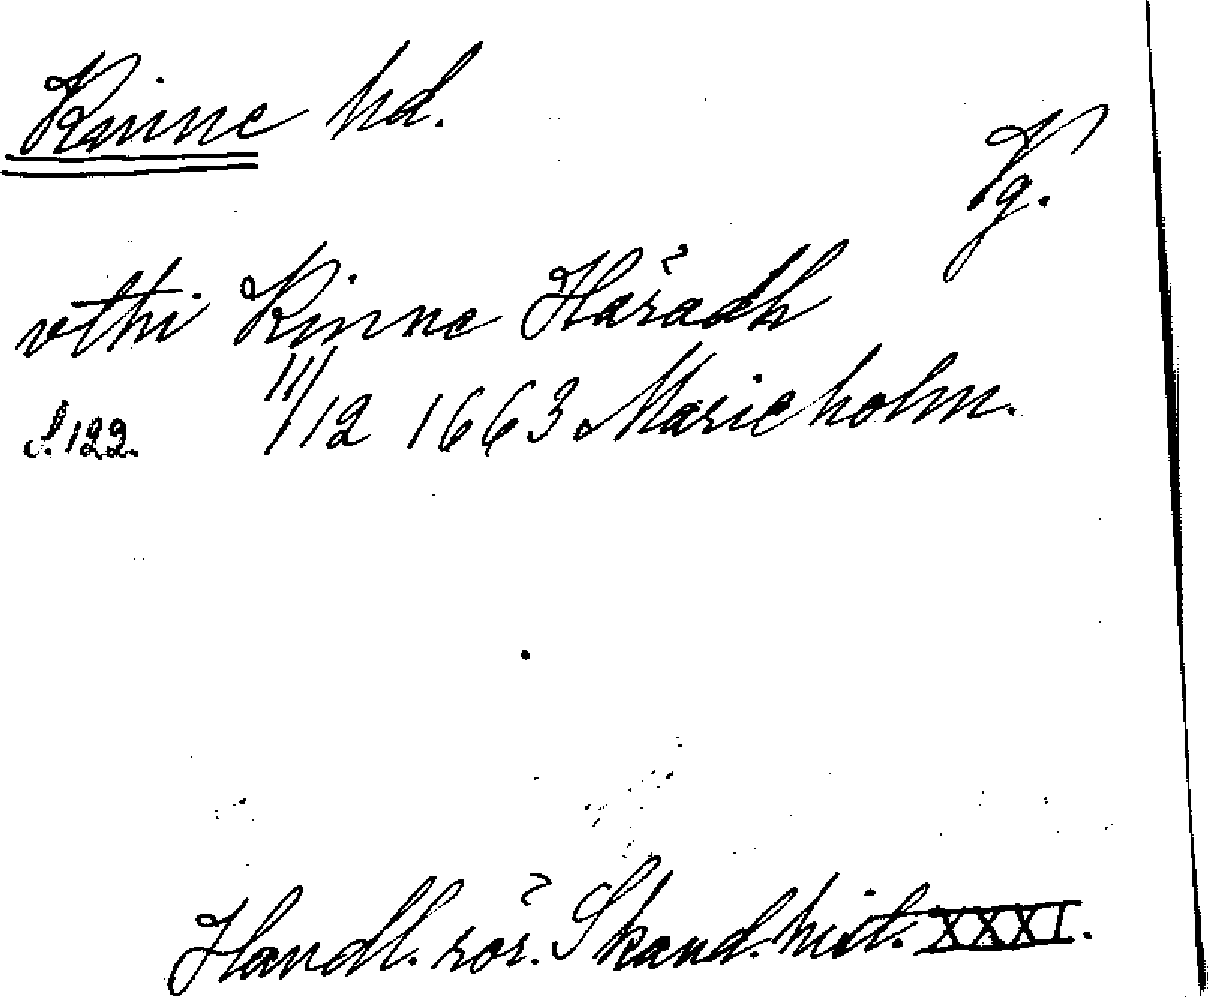 Kinne hd.
Vg.
vthi Kinne Häradh
S. 122. 111/12 1663 Marieholm.
Handl. rör. Skand. hist. XXXI.